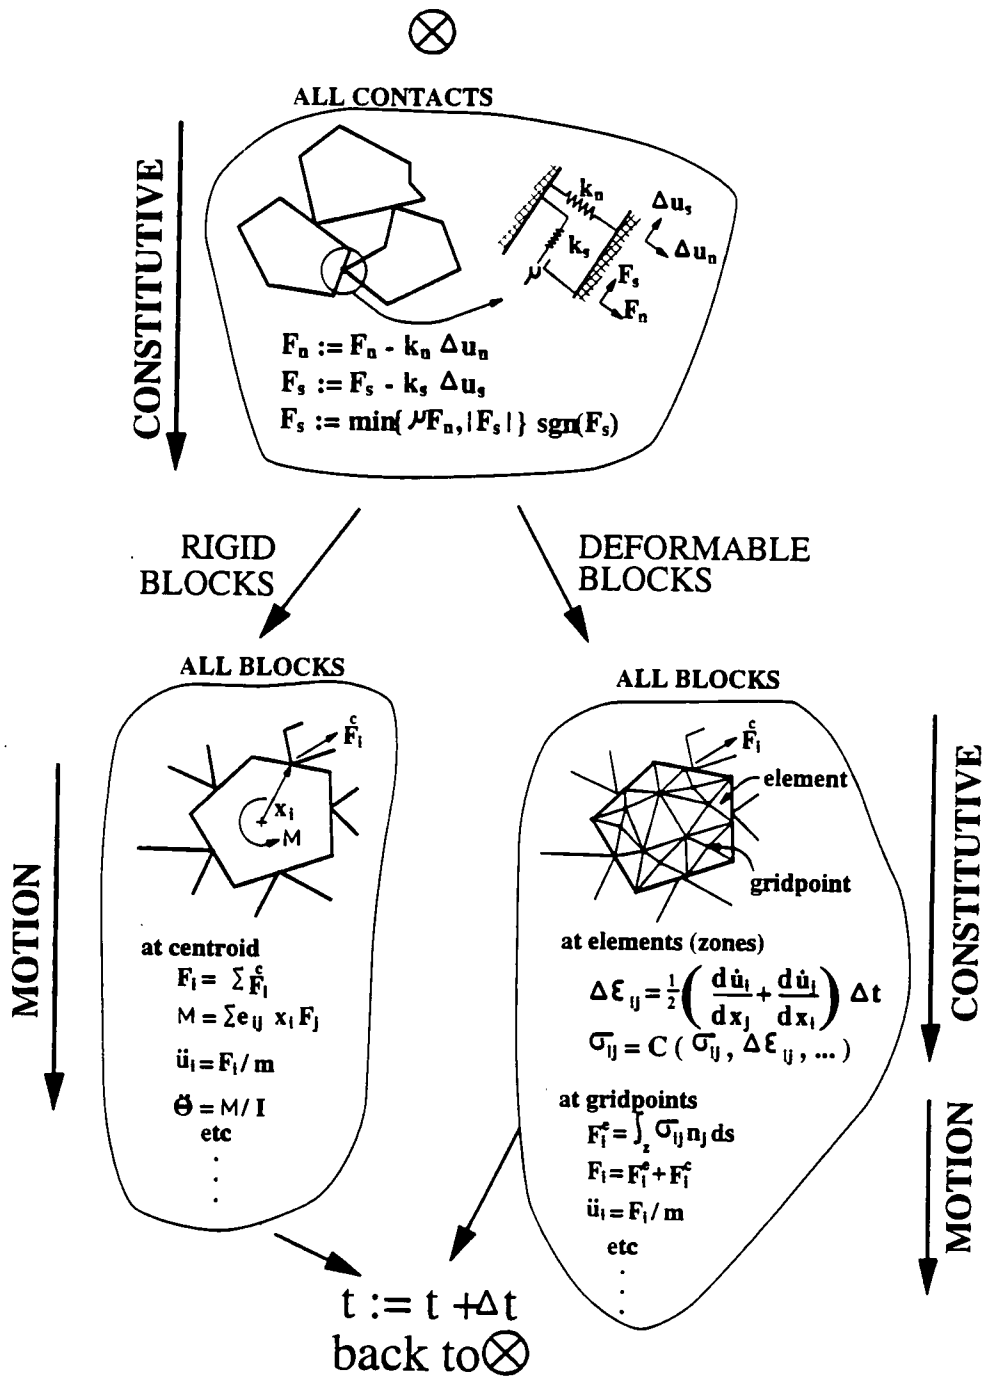 ⊗
ALL CONTACTS
CONSTITUTIVE
kₙ
kₛ
μ
Δuₛ
Δuₙ
Fₛ
Fₙ
Fₙ := Fₙ - kₙ Δuₙ
Fₛ := Fₛ - kₛ Δuₛ
Fₛ := min{ μFₙ, |Fₛ| } sgn(Fₛ)
RIGID
BLOCKS
DEFORMABLE
BLOCKS
ALL BLOCKS
MOTION
Fᵢᶜ
xᵢ
M
at centroid
Fᵢ = ΣFᵢᶜ
M = Σeᵢⱼ xᵢ Fⱼ
üᵢ = Fᵢ / m
θ̈ = M / I
etc
ALL BLOCKS
CONSTITUTIVE
Fᵢᶜ
element
gridpoint
at elements (zones)
Δεᵢⱼ = 1/2 ( du̇ᵢ/dxⱼ + du̇ⱼ/dxᵢ ) Δt
σᵢⱼ = C ( σᵢⱼ, Δεᵢⱼ, ... )
MOTION
at gridpoints
Fᵢᵉ = ∫z σᵢⱼ nⱼ ds
Fᵢ = Fᵢᵉ + Fᵢᶜ
üᵢ = Fᵢ / m
etc
t := t + Δt
back to ⊗